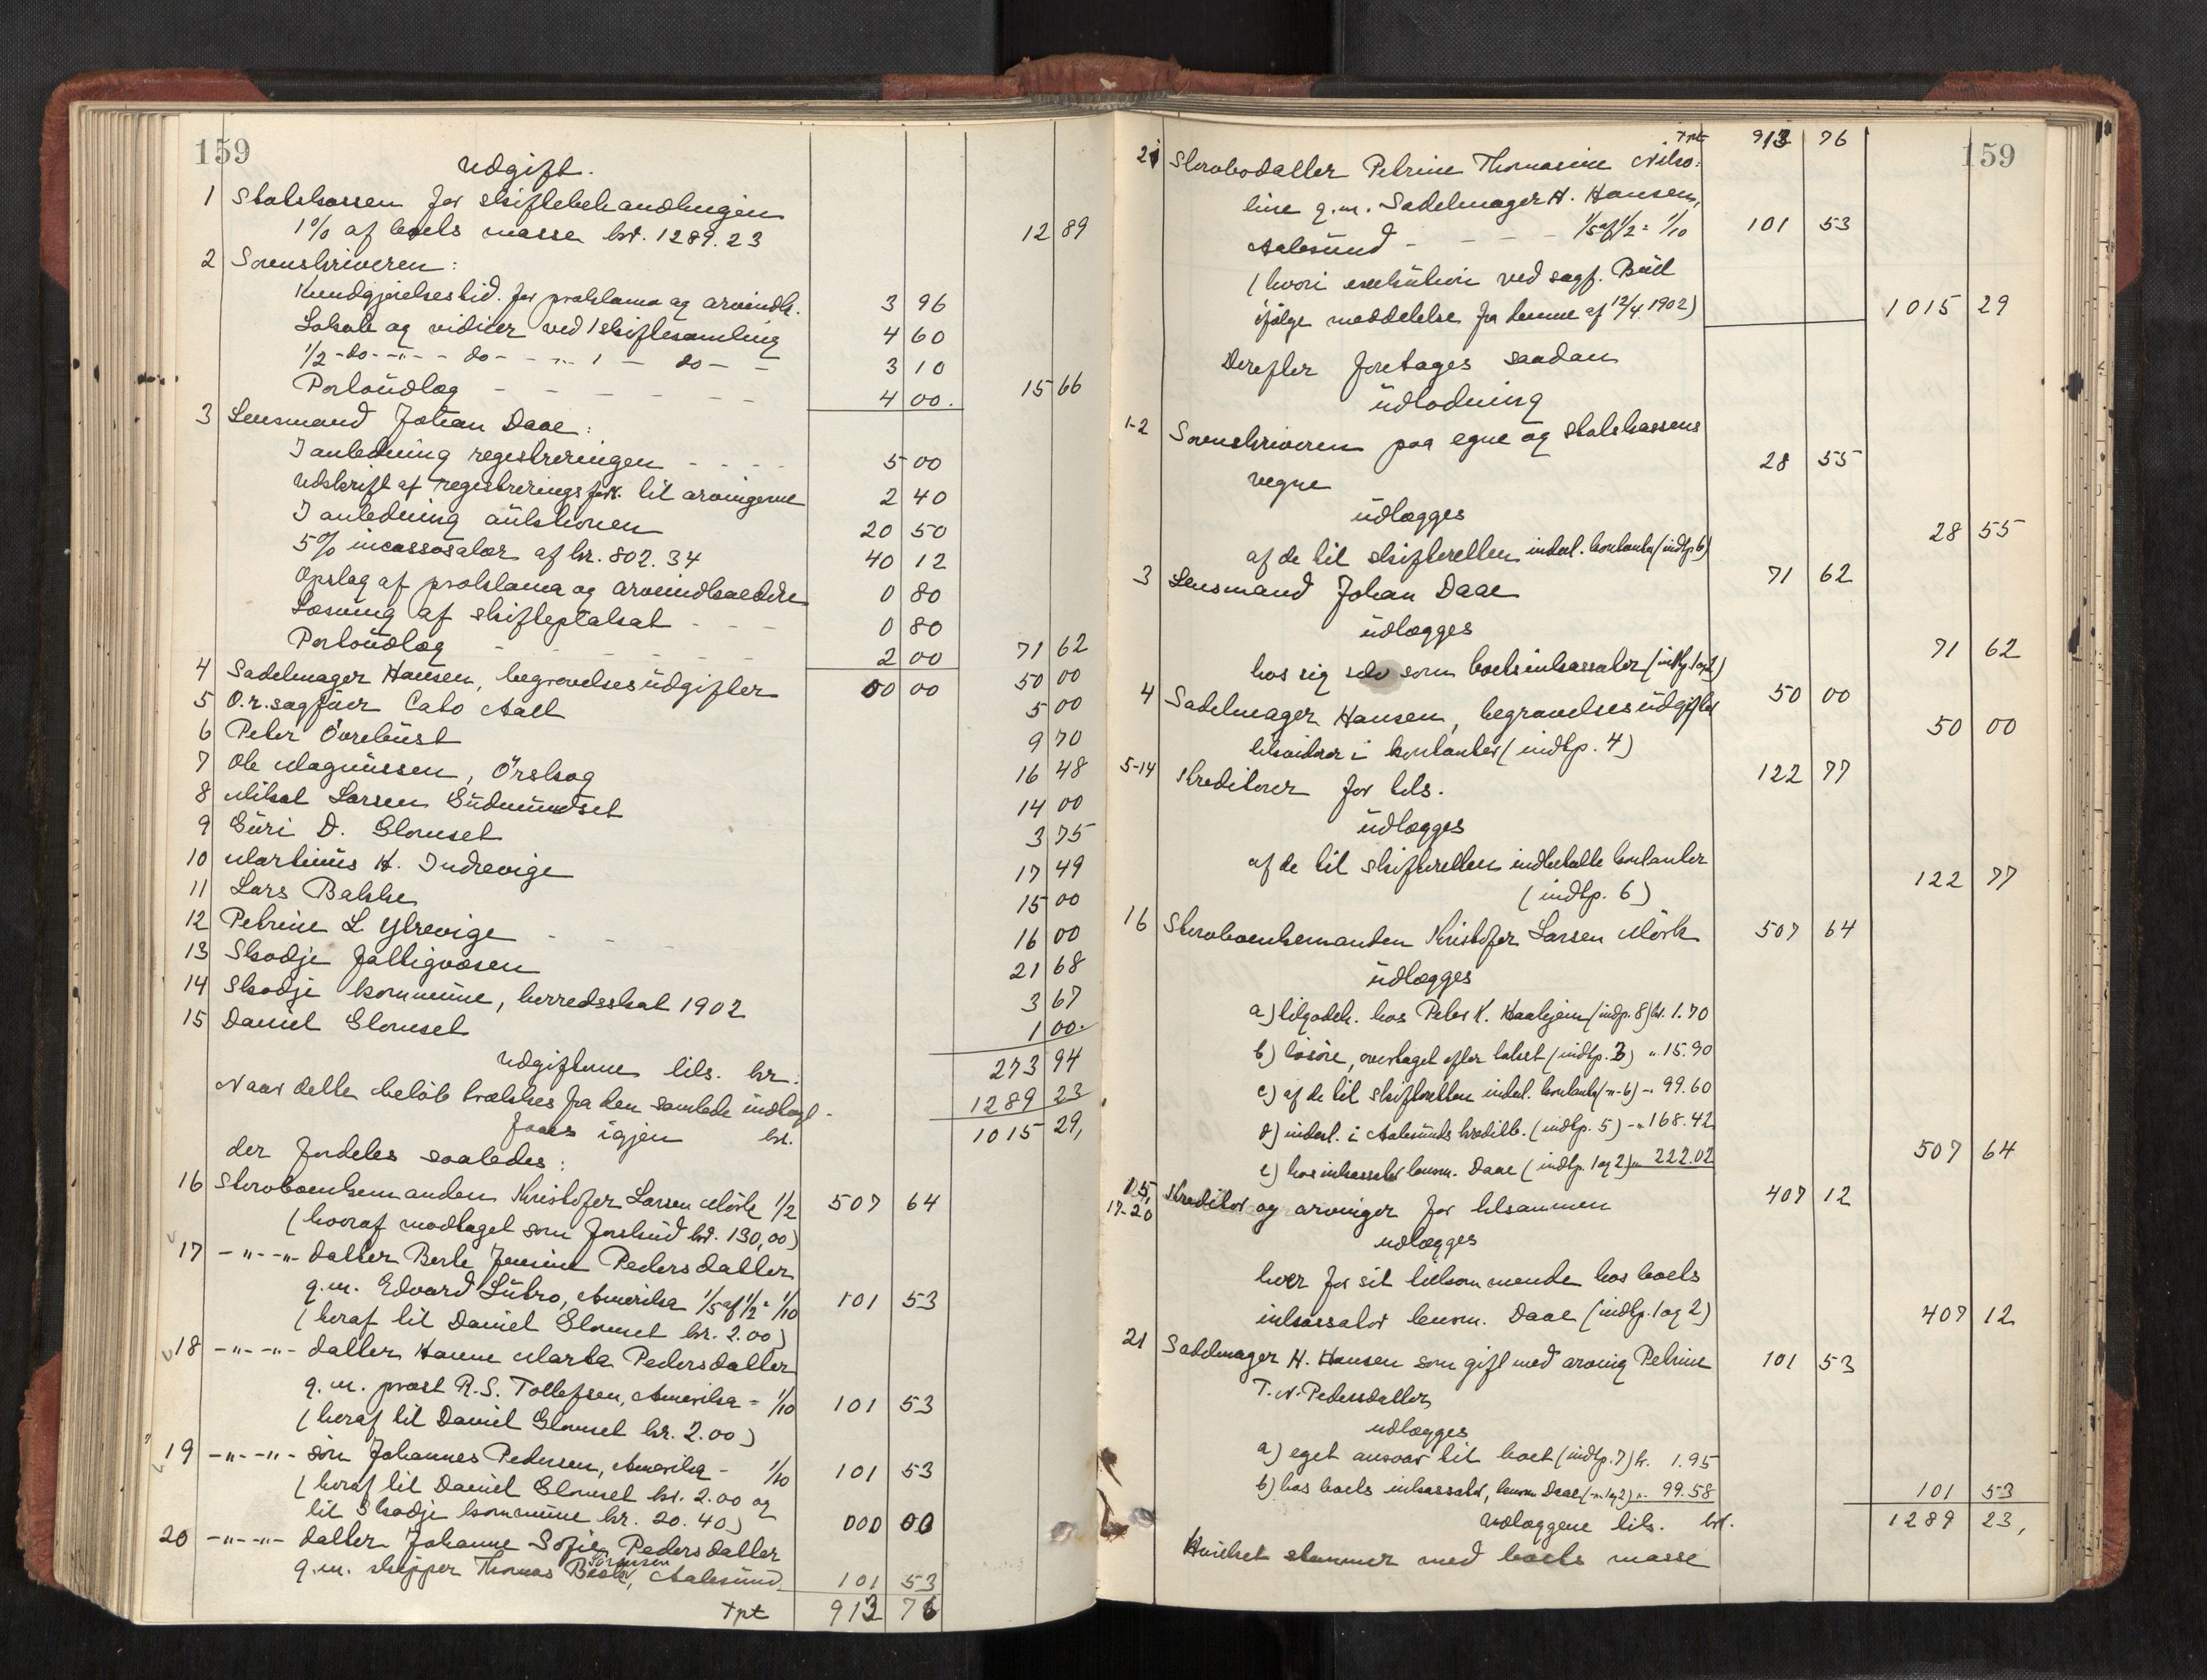 159
Udgift.
1 Statskassen for skiftebehandlingen
1% af boets masse kr. 1289.23 12 89
2 Sorenskriveren:
Kundgjørelsestid. for proklama og arveindk. 3 96
Lokale og vidner ved 1 skiftesamling 4 60
1/2 - do - " - do - " 1 - do - 3 10
Portoudlæg - - - 4 00. 15 66
3 Lensmand Johan Daae:
I anledning registreringen - - - 5 00
Udskrift af registreringsforr. til arvingerne 2 40
I anledning auktionen 20 50
5% incassosalær af kr. 802.34 40 12
Opslag af proklama og arveindkaldelse 0 80
Læsning af skifteptakat - - - 0 80
Portoudlæg - - - 2 00 71 62
4 Sadelmager Hansen, begravelsesudgifter 00 00 50 00
5 O.r.sagfører Cato Aall 5 00
6 Peter Övrebust 9 70
7 Ole Magnussen, Örskog 16 48
8 Mikal Larsen Gudmundset 14 00
9 Guri D. Glomset 3 75
10 Martinus K. Indrevige 17 49
11 Lars Bakke 15 00
12 Petrine L. Ytrevige - - - 16 00
13 Skodje fattigvæsen 21 68
14 Skodje kommune, herredsskat 1902 3 67
15 Daniel Glomset 1 00.
Udgifterne tils. kr: 273 94
Naar dette beløb trækkes fra den samlede indtægt - 1289 23
faaes igjen kr. 1015 29,
der fordeles saaledes:
16 Stervboenkemanden Kristofer Larsen Mörk 1/2 507 64
(hvoraf modtaget som forskud kr. 130,00)
17 - " - " - datter Berte Jensine Pedersdatter
g.m. Edvard Lubro, Amerika 1/5 af 1/2 = 1/10 101 53
(heraf til Daniel Glomset kr. 2.00)
18 - " - " - datter Hanne Marta Pedersdatter
g.m. præst R.S. Tollefsen, Amerika = 1/10 101 53
(heraf til Daniel Glomset kr. 2.00)
19 - " - " - sön Johannes Pedersen, Amerika - 1/10 101 53
(heraf til Daniel Glomset kr. 2.00 og
til Skodje kommune kr. 20.40) 000 00
20 - " - " - datter Johanne Sofie Pedersdatter
Sörensen
g.m. skipper Thomas, Aalesund 101 53
Tpt 913 76
159
Tpt 913 76
21 Stervbodatter Petrine Thomasine Niko-
line g.m. Sadelmager H. Hansen,
Aalesund - - - 1/5 af 1/2 = 1/10 101 53
(hvori exekution ved sagf. Bull
ifølge meddelelse fra denne af 12/4 1902) 1015 29
Derefter foretages saadan
udlodning
1-2 Sorenskriveren paa egne og statskassens
vegne 28 55
udlægges
af de til skifteretten inderl. kontanter (indtp 6) 28 55
3 Lensmand Johan Daae 71 62
udlægges
hos sig selv som boets inkassator (indtp. 1 og 2) 71 62
4 Sadelmager Hansen, begravelsesudgifter 50 00
i kontanter (indtp. 4) 50 00
5-14 Kreditorer for tils. 122 77
udlægges
af de til skifteretten indbetalte kontanter
(indtp. 6) 122 77
16 Stervboenkemanden Kristofer Larsen Mörk 507 64
udlægges
a) tilgodeh. hos Peter K. Haahjem (indp. 8) kr. 1.70
b) løsøre, overtaget efter takst (indtp. 3) " 15.90
c) af de til skifteretten inderl. kontanter (-"- 6) -" 99.60
d) inderl. i Aalesunds kreditb. (indtp. 5) -" 168.42
e) hos inkassator lensm. Daae (indtp. 1 og 2) " 222.02 507 64
15, 17-20 Kreditor og arvinger for tilsammen 407 12
udlægges
hver for sit tilkommende hos boets
inkassator lensm. Daae (indtp. 1 og 2) 407 12
21 Sadelmager H. Hansen som gift med arving Petrine 101 53
T.N. Pedersdatter
udlægges
a) eget ansvar til boet (indtp. 7) kr. 1.95
b) hos boets inkassator, lensm Daae (-"- 1 og 2) -" 99.58 101 53
Udlæggene tils. kr. 1289 23,
Hvilket stemmer med boets masse